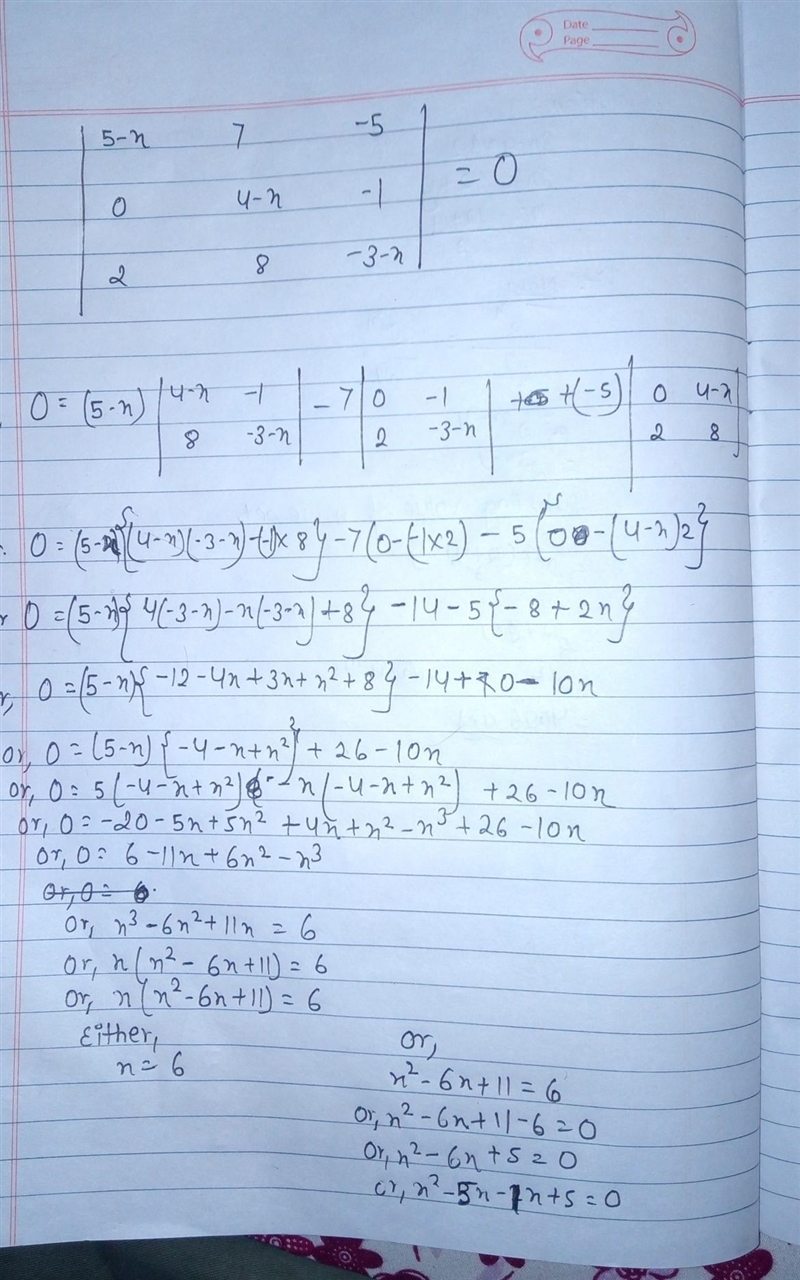 Date
Page
5-x 7 -5
0 4-x -1 = 0
2 8 -3-x
0 = (5-x) |4-x -1| - 7 |0 -1| + (-5) |0 4-x|
8 -3-x 2 -3-x 2 8
0 = (5-x) {(4-x)(-3-x) - (-1)×8} - 7(0-(-1×2) - 5 {0 - (4-x)2}
0 = (5-x) {4(-3-x) - x(-3-x) + 8} - 14 - 5 {-8 + 2x}
0 = (5-x) {-12 - 4x + 3x + x² + 8} - 14 + 40 - 10x
or, 0 = (5-x) {-4 - x + x²} + 26 - 10x
or, 0 = 5(-4-x+x²) - x(-4-x+x²) + 26 - 10x
or, 0 = -20 - 5x + 5x² + 4x + x² - x³ + 26 - 10x
or, 0 = 6 - 11x + 6x² - x³
or, 0 = 6
or, x³ - 6x² + 11x = 6
or, x(x² - 6x + 11) = 6
or, x(x² - 6x + 11) = 6
Either, or,
x = 6 x² - 6x + 11 = 6
or, x² - 6x + 11 - 6 = 0
or, x² - 6x + 5 = 0
or, x² - 5x - 1x + 5 = 0